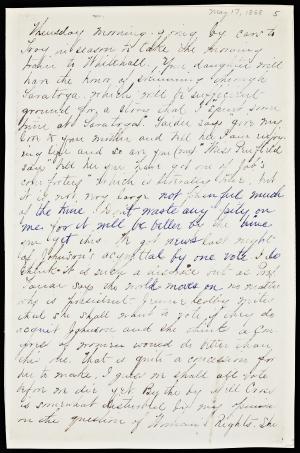 May 17, 1868 5
Thursday morning going by cars to
Troy in season to take the morning
train to Whitehall. Your daughter will
have the honor of steaming through
Saratoga, which will be sufficient
ground for a story that I spent some
time at Saratoga. says give my
love to your mother and tell her I am
my and so are you (says "Miss
says tell her you have got one of Job's
comforters" which is threatening but
it is not very large not painful much
of the time. I don't waste any pity on
me for it will be better by the time
you get this. We got news last night
of Johnson's acquittal by one vote. I do
think it is such a disgrace but as
says the world moves on no matter
who is president. writes
that she shall want to vote if they do
acquit Johnson and she thinks a Con-
gress of women would do better than
this one. That is quite a concession for
her to make. I guess we shall all vote
before we die yet. By the by Will Cross
is somewhat disturbed by my
on the question of Woman's Rights. She